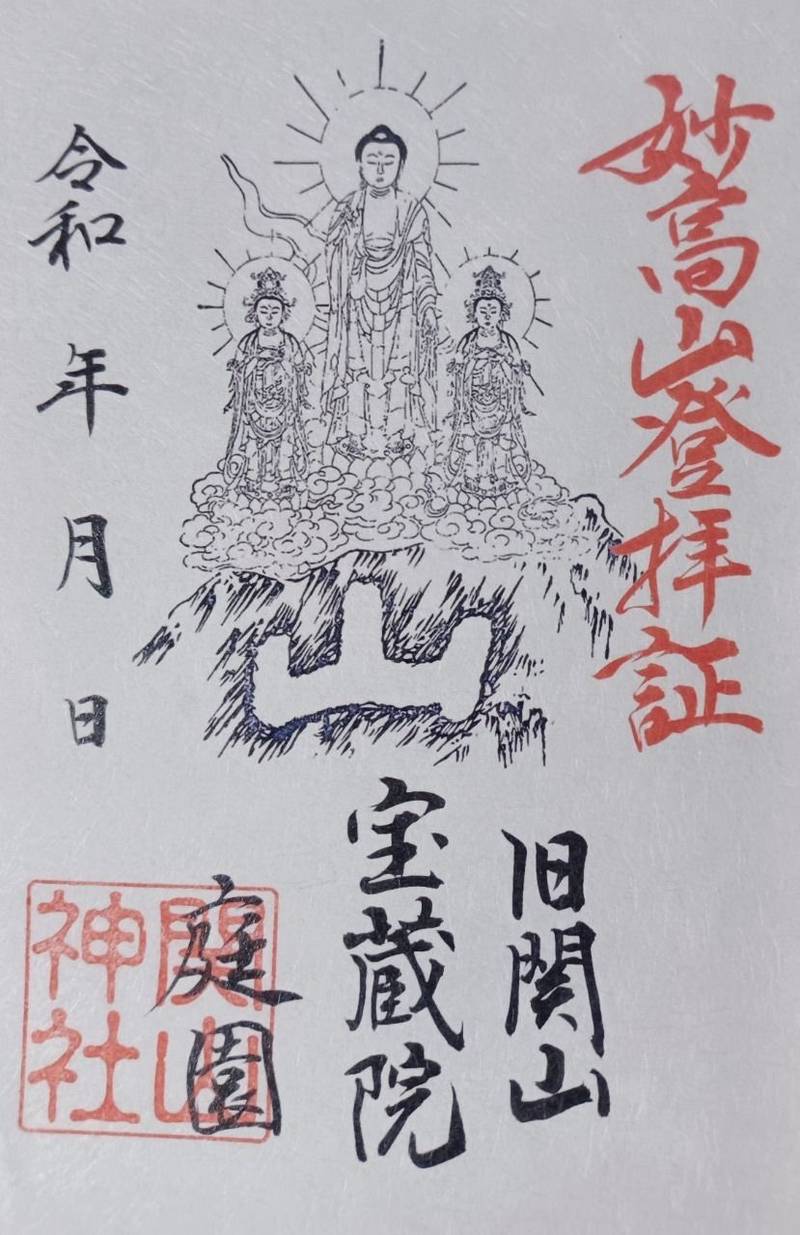 妙高山登拝証
山
旧関山
宝蔵院
庭園
関山
神社
令和 年 月 日